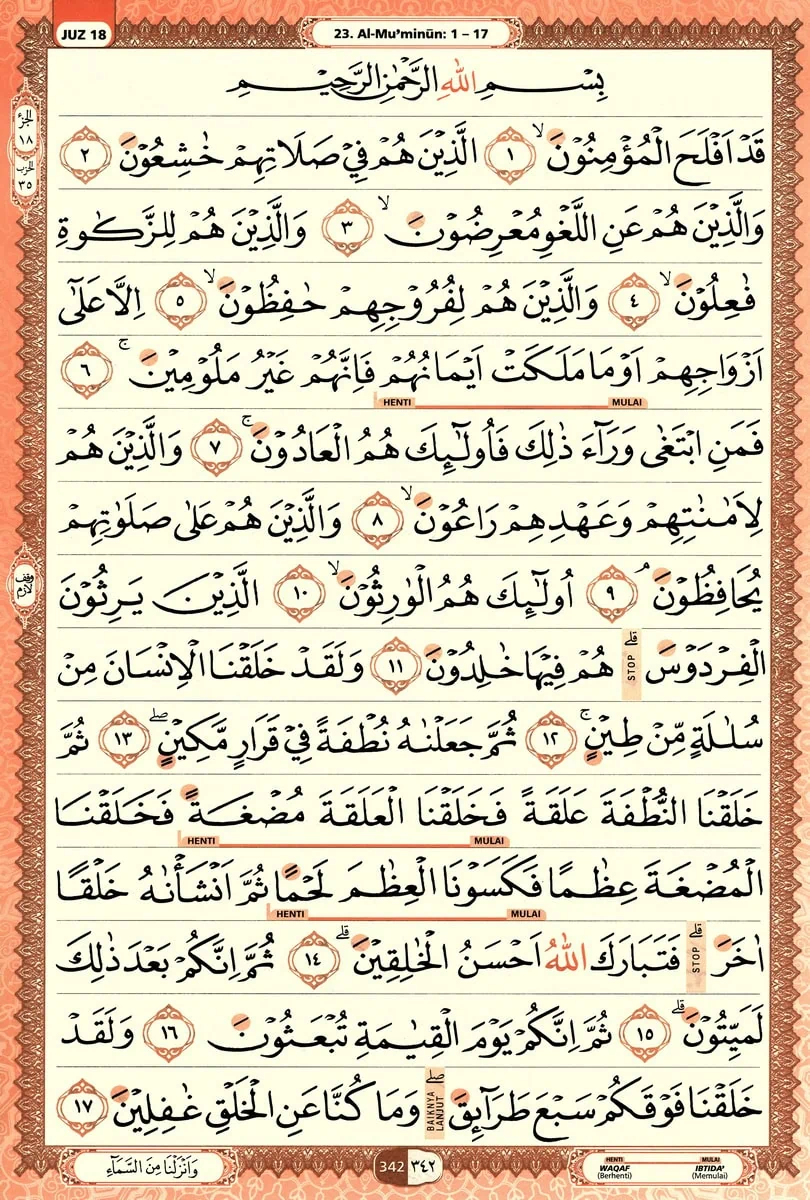 JUZ 18
23. Al-Mu’minūn: 1 – 17
الجزء ١٨
الحزب ٣٥
بِسْمِ اللّٰهِ الرَّحْمٰنِ الرَّحِيْمِ
قَدْ اَفْلَحَ الْمُؤْمِنُوْنَۙ ١ الَّذِيْنَ هُمْ فِيْ صَلَاتِهِمْ خٰشِعُوْنَ ٢
وَالَّذِيْنَ هُمْ عَنِ اللَّغْوِ مُعْرِضُوْنَۙ ٣ وَالَّذِيْنَ هُمْ لِلزَّكٰوةِ
فٰعِلُوْنَۙ ٤ وَالَّذِيْنَ هُمْ لِفُرُوْجِهِمْ حٰفِظُوْنَۙ ٥ اِلَّا عَلٰٓى
اَزْوَاجِهِمْ اَوْ مَا مَلَكَتْ اَيْمَانُهُمْ فَاِنَّهُمْ غَيْرُ مَلُوْمِيْنَۚ ٦
HENTI MULAI
فَمَنِ ابْتَغٰى وَرَاۤءَ ذٰلِكَ فَاُولٰۤىِٕكَ هُمُ الْعَادُوْنَۚ ٧ وَالَّذِيْنَ هُمْ
لِاَمٰنٰتِهِمْ وَعَهْدِهِمْ رَاعُوْنَۙ ٨ وَالَّذِيْنَ هُمْ عَلٰى صَلَوٰتِهِمْ
وقف لازم
يُحَافِظُوْنَۘ ٩ اُولٰۤىِٕكَ هُمُ الْوٰرِثُوْنَۙ ١٠ الَّذِيْنَ يَرِثُوْنَ
الْفِرْدَوْسَۗ STOP هُمْ فِيْهَا خٰلِدُوْنَ ١١ وَلَقَدْ خَلَقْنَا الْاِنْسَانَ مِنْ
سُلٰلَةٍ مِّنْ طِيْنٍۚ ١٢ ثُمَّ جَعَلْنٰهُ نُطْفَةً فِيْ قَرَارٍ مَّكِيْنٍۖ ١٣ ثُمَّ
خَلَقْنَا النُّطْفَةَ عَلَقَةً فَخَلَقْنَا الْعَلَقَةَ مُضْغَةً فَخَلَقْنَا
HENTI MULAI
الْمُضْغَةَ عِظٰمًا فَكَسَوْنَا الْعِظٰمَ لَحْمًا ثُمَّ اَنْشَأْنٰهُ خَلْقًا
HENTI MULAI
اٰخَرَۗ STOP فَتَبَارَكَ اللّٰهُ اَحْسَنُ الْخٰلِقِيْنَۗ ١٤ ثُمَّ اِنَّكُمْ بَعْدَ ذٰلِكَ
لَمَيِّتُوْنَۗ ١٥ ثُمَّ اِنَّكُمْ يَوْمَ الْقِيٰمَةِ تُبْعَثُوْنَ ١٦ وَلَقَدْ
خَلَقْنَا فَوْقَكُمْ سَبْعَ طَرَاۤىِٕقَۖ BAIKNYA LANJUT وَمَا كُنَّا عَنِ الْخَلْقِ غٰفِلِيْنَ ١٧
وَاَنْزَلْنَا مِنَ السَّمَاۤءِ
342 ٣٤٢
HENTI MULAI
WAQAF IBTIDA’
(Berhenti) (Memulai)